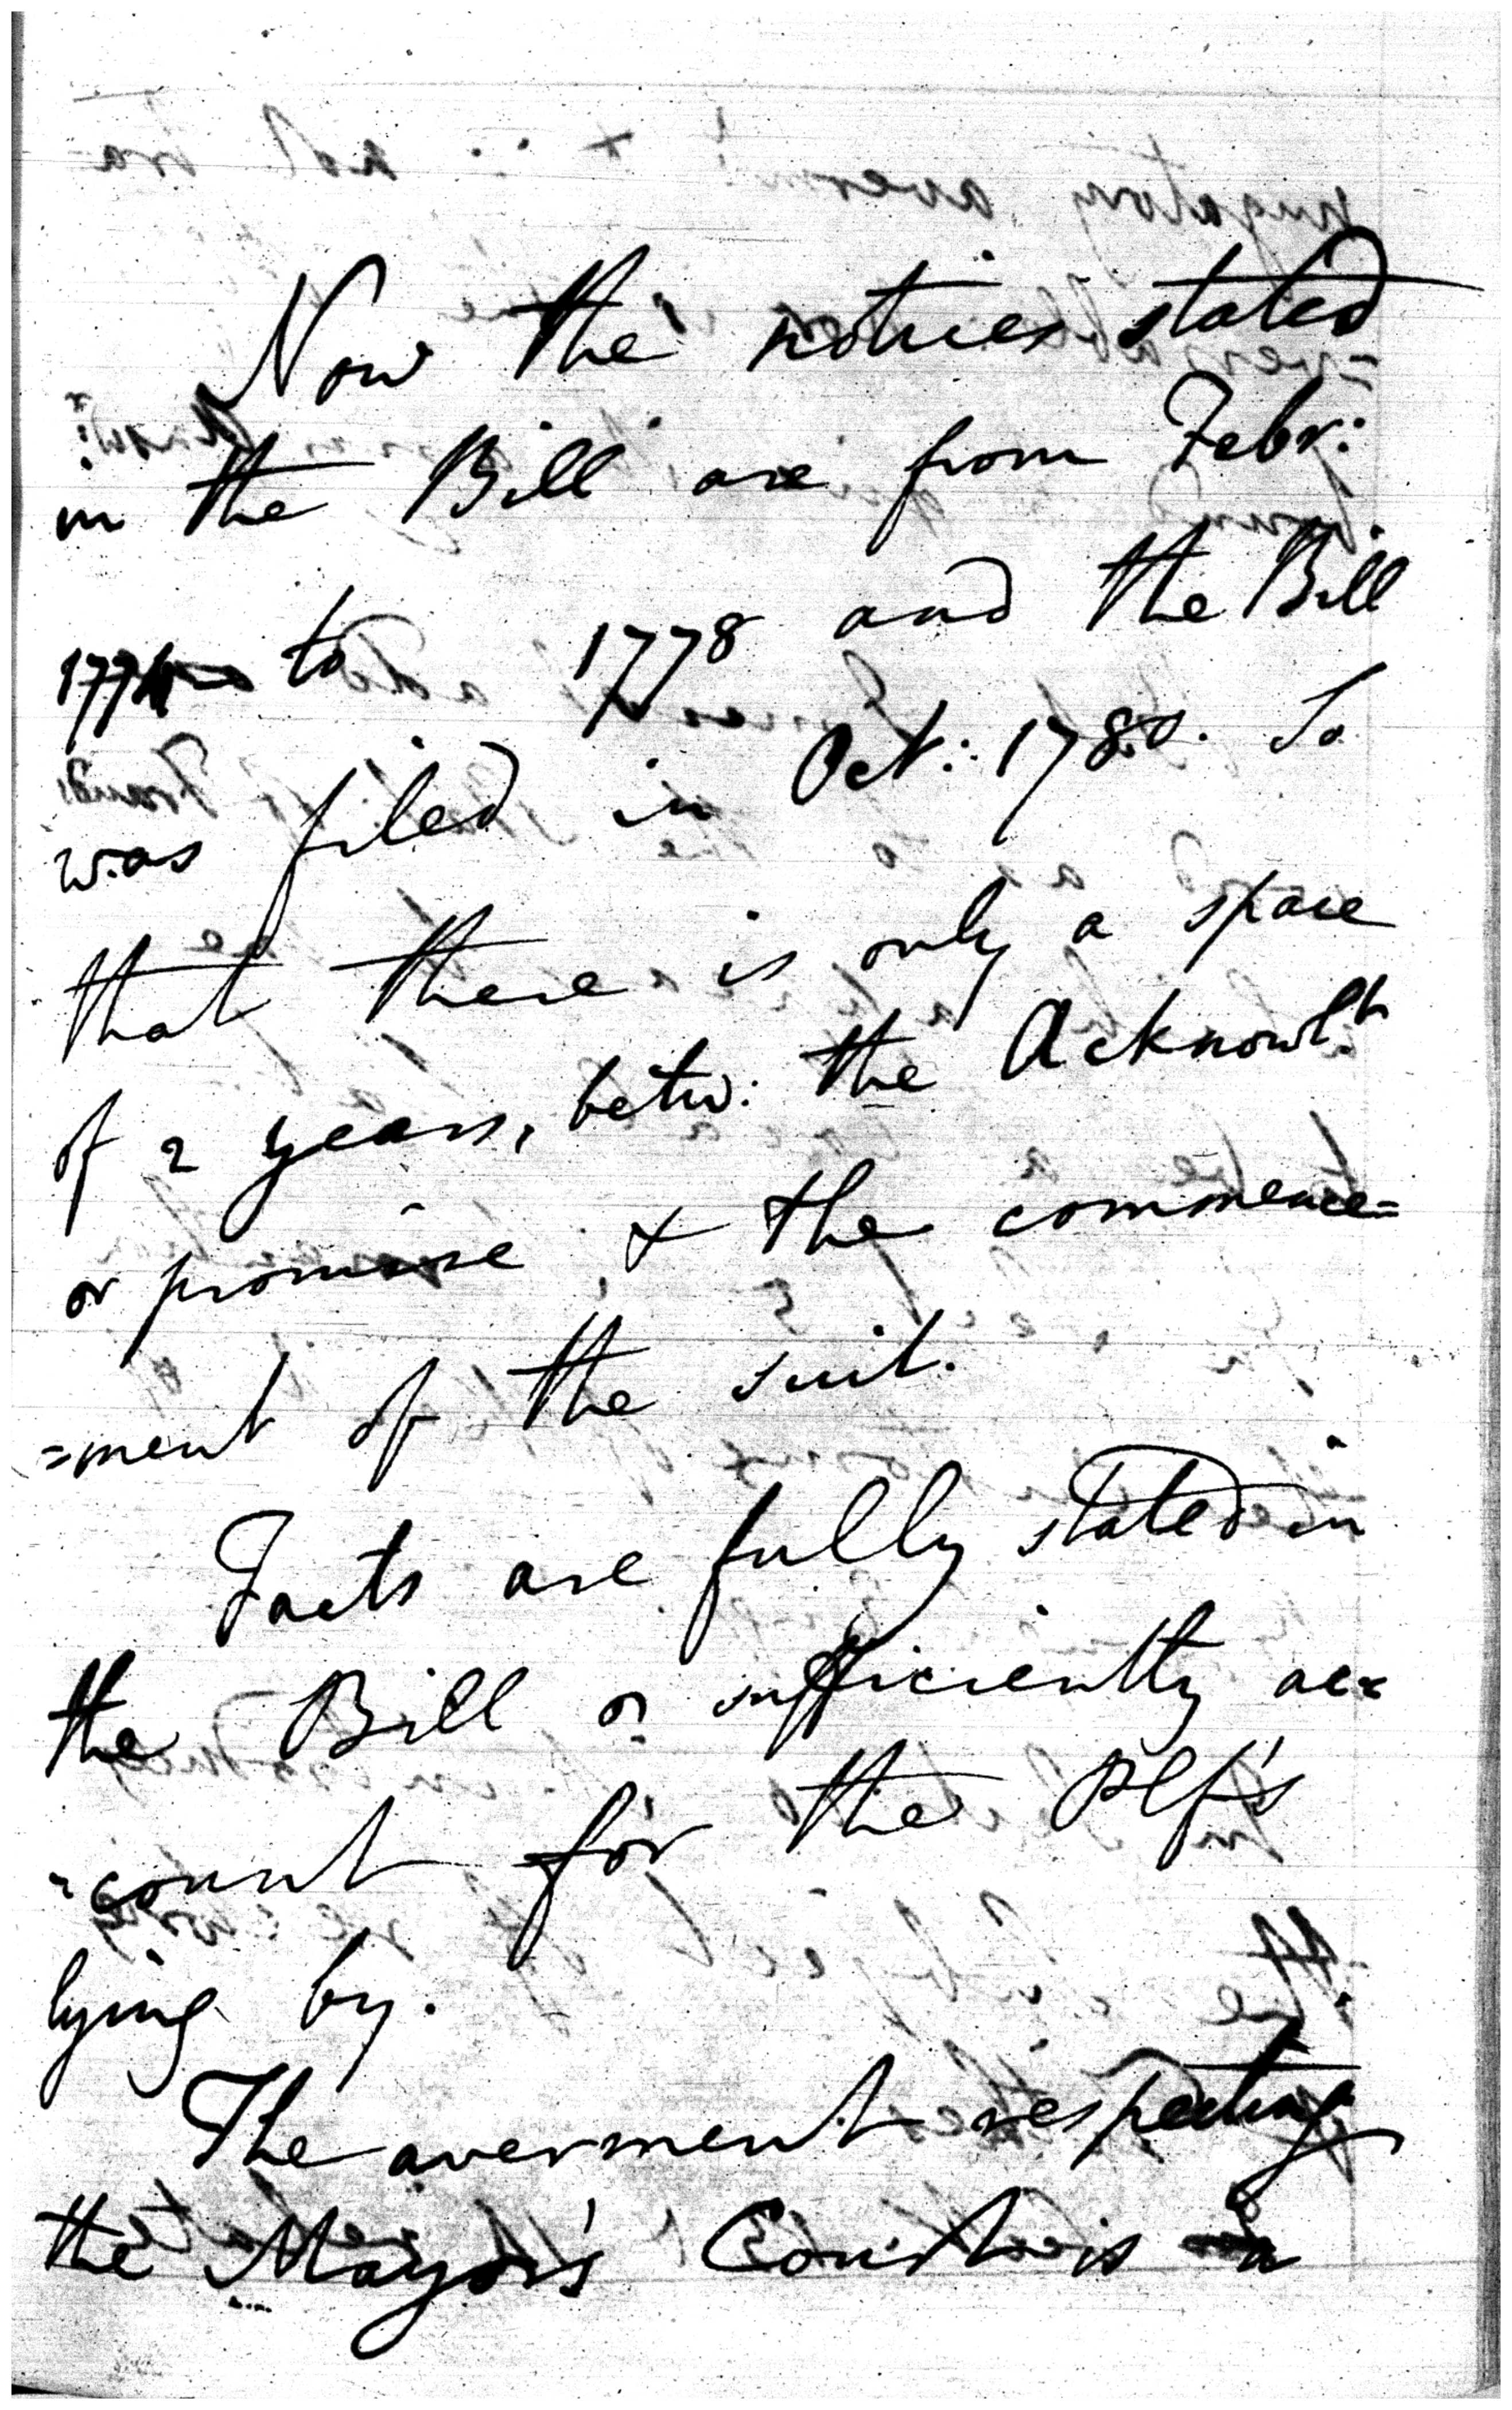 Now the notices stated
in the Bill are from Febr:
to 1778 and the Bill
was filed in Oct: 1780. So
that there is only a space
of 2 years, betw: the Acknowlt
or promise & the commence=
=ment of the suit.
Facts are fully stated in
the Bill sufficiently ac=
=count for the Plf's
lying by.
The averment respecting
the Mayor's Court is a